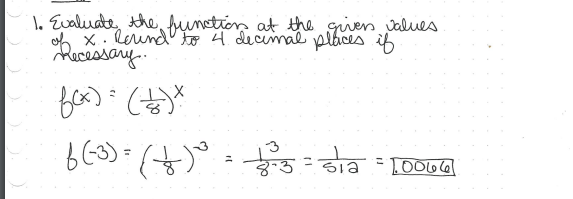 1. Evaluate the function at the given values
of x. Round to 4 decimal places if
necessary.
f(x) = (1/8)^x
f(-3) = (1/8)^-3 = 1^3/8^-3 = 1/512 = .0066